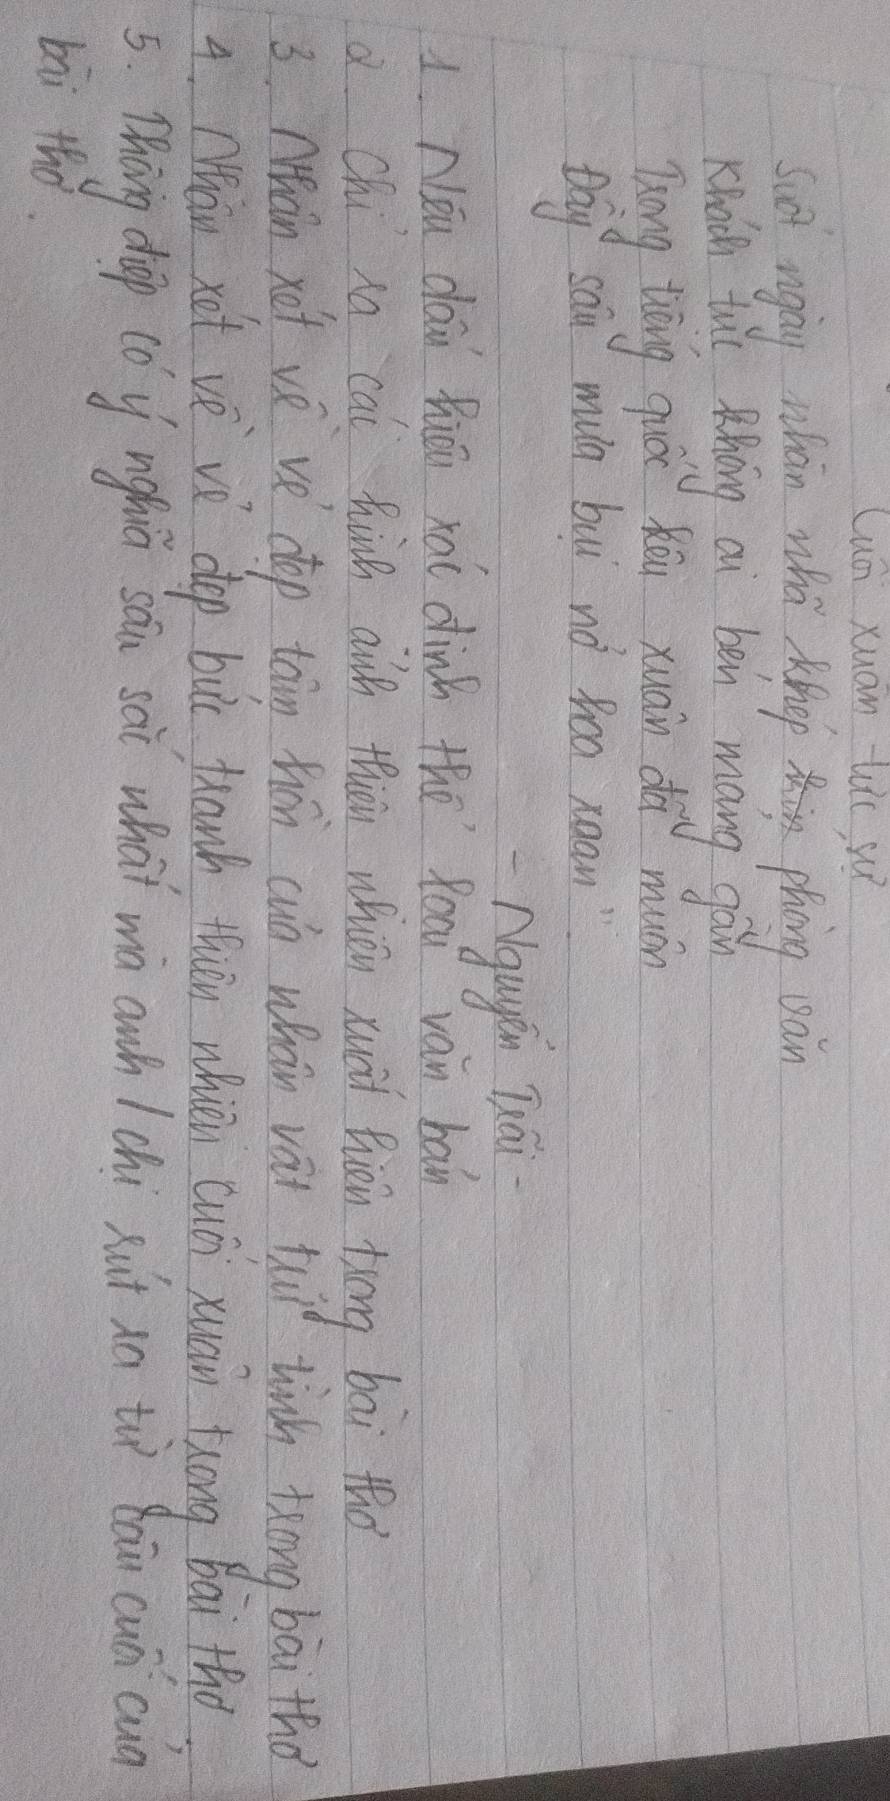 Cuối xuân tức sự
Suốt ngày nhàn nhã khép phòng văn
Khách tục không ai bén mảng gần
Trong tiếng quốc kêu xuân đã muộn
Đầy sân mưa bụi nở hoa xoan"
- Nguyễn Trãi -
1. Nêu dấu hiệu xác định thể loại văn bản
2. Chỉ ra các hình ảnh thiên nhiên xuất hiện trong bài thơ
3. Nhận xét về vẻ đẹp tâm hồn của nhân vật trữ tình trong bài thơ
4. Nhận xét về vẻ đẹp bức tranh thiên nhiên cuối xuân trong bài thơ.
5. Thông điệp có ý nghĩa sâu sắc nhất mà anh / chị rút ra từ câu cuối của
bài thơ.